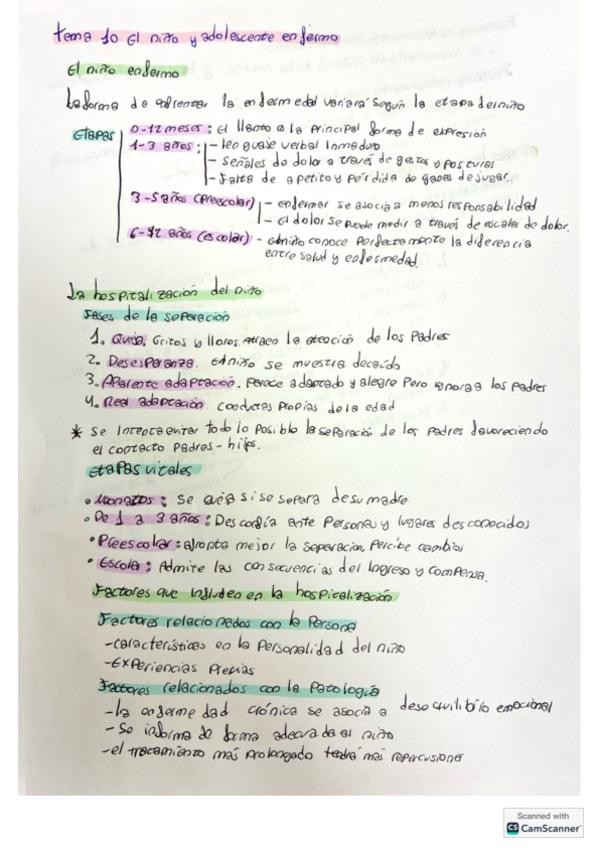 tema 10 El niño y adolescente enfermo
El niño enfermo
La forma de afrontar la enfermedad variará según la etapa del niño
Etapas
0-12 meses: El llanto es la principal forma de expresión
1-3 años: - leguaje verbal Inmaduro
- Señales de dolor a través de gestos y posturas
- Falta de apetito y pérdida de ganas de jugar.
3-5 años (preescolar) - enfermar se asocia a menos responsabilidad
- El dolor se puede medir a través de escalas de dolor.
6-12 años (escolar) - el niño conoce perfectamente la diferencia
entre salud y enfermedad.
La hospitalización del niño
Fases de la separación
1. Queja. Gritos y lloros. Atraen la atención de los Padres
2. Desesperanza. el niño se muestra decaído
3. Aparente adaptación. Parece adaptado y alegre pero ignora a los padres
4. Real adaptación. conductas propias de la edad
* Se intenta evitar todo lo posible la separación de los padres favoreciendo
el contacto padres - hijs.
etapas vitales
• Neonatos: se queja si se separa de su madre
• De 1 a 3 años: Desconfía ante personas y lugares desconocidos
• Preescolar: afronta mejor la separación, percibe cambios
• Escolar: Admite las consecuencias del Ingreso y compensa.
Factores que influyen en la hospitalización
Factores relacionados con la Persona
- características en la Personalidad del niño
- Experiencias Previas
Factores relacionados con la Patología
- la enfermedad crónica se asocia a desequilibrio emocional
- Se informa de forma adecuada al niño
- el tratamiento más prolongado tendrá más repercusiones
Scanned with
CS CamScanner